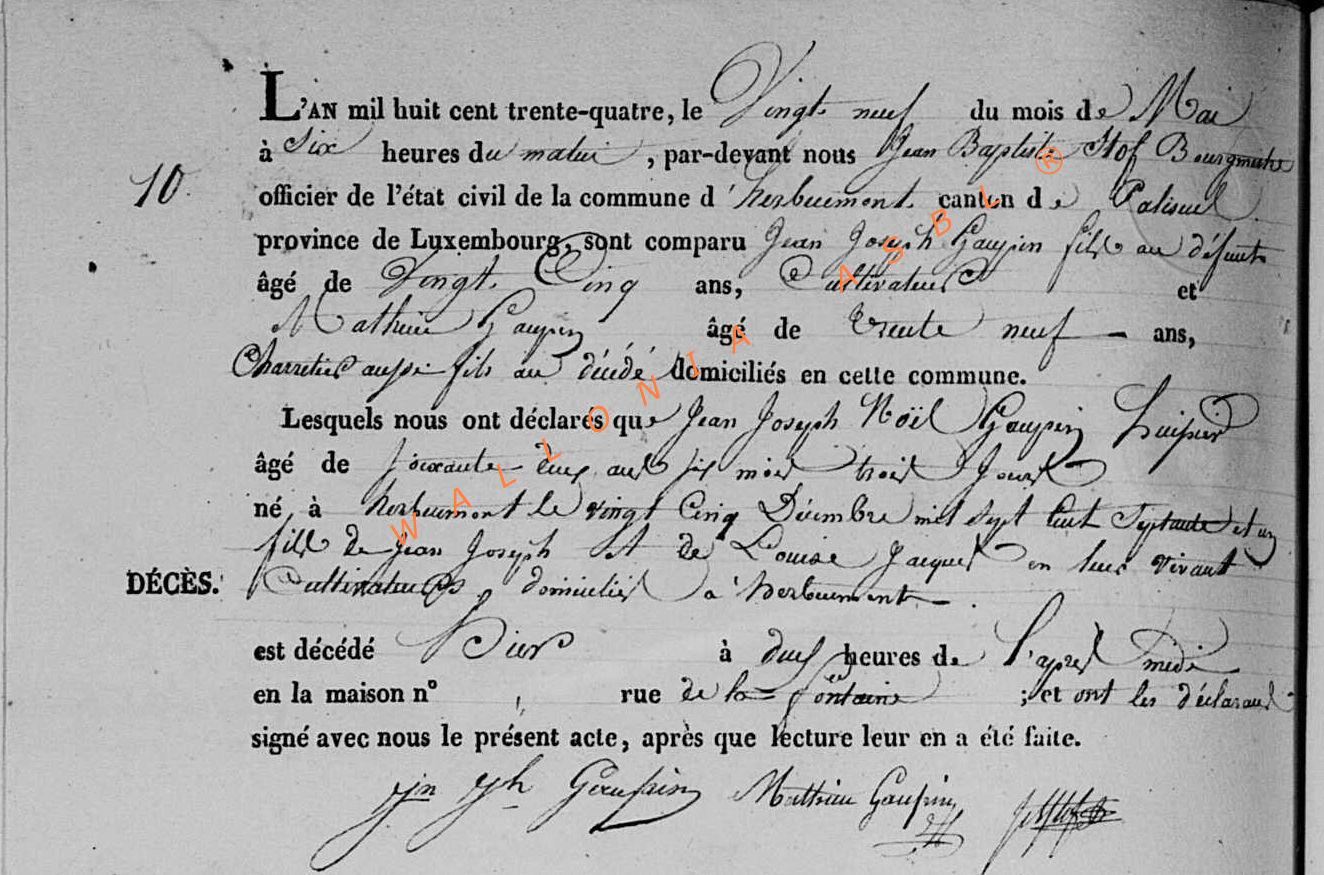 L'AN mil huit cent trente-quatre, le Vingt neuf du mois de Mai
à Six heures du matin, par-devant nous Jean Baptiste Stof Bourgmestre
10.
officier de l'état civil de la commune d'herbeumont canton de Paliseul
province de Luxembourg, sont comparu Jean Joseph Gaupin fils au défunt
âgé de Vingt Cinq ans, Cultivateur et
Mathieu Gaupin âgé de trente neuf ans,
Charretier aussi fils au décédé domiciliés en cette commune.
Lesquels nous ont déclarés que Jean Joseph Noël Gaupin huissier
âgé de soixante deux ans six mois trois jours
né à herbeumont le vingt Cinq Décembre mil sept cent septante et un
fils de Jean Joseph et de Louise Jacques en leur vivant
DÉCÈS. Cultivateurs, domiciliés à herbeumont.
est décédé hier à deux heures de l'après midi
en la maison n° , rue de la fontaine ; et ont les déclarans
signé avec nous le présent acte, après que lecture leur en a été faite.
jn jh Gaupin Mathieu Gaupin
WALLONIA ASBL ®